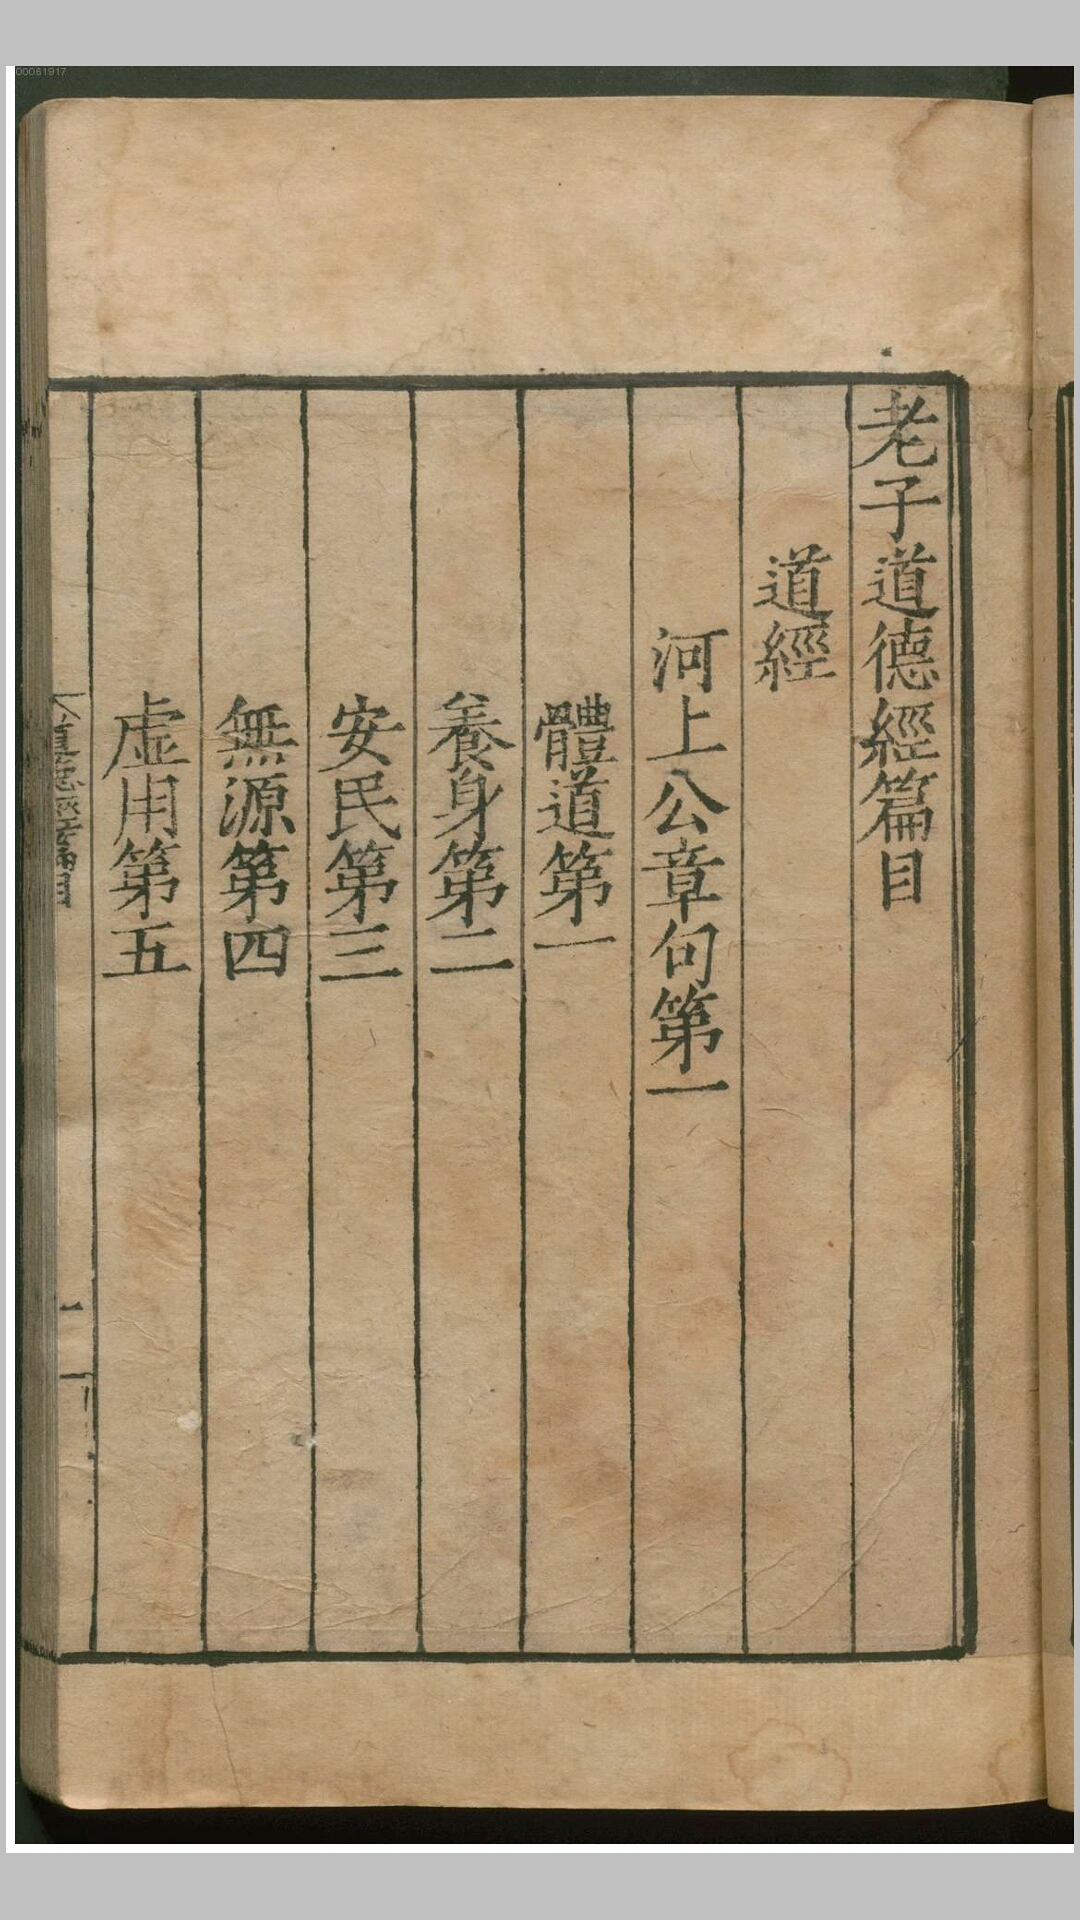 00061917
老子道德經篇目
道經
河上公章句第一
體道第一
養身第二
安民第三
無源第四
虛用第五
道德經篇目
二